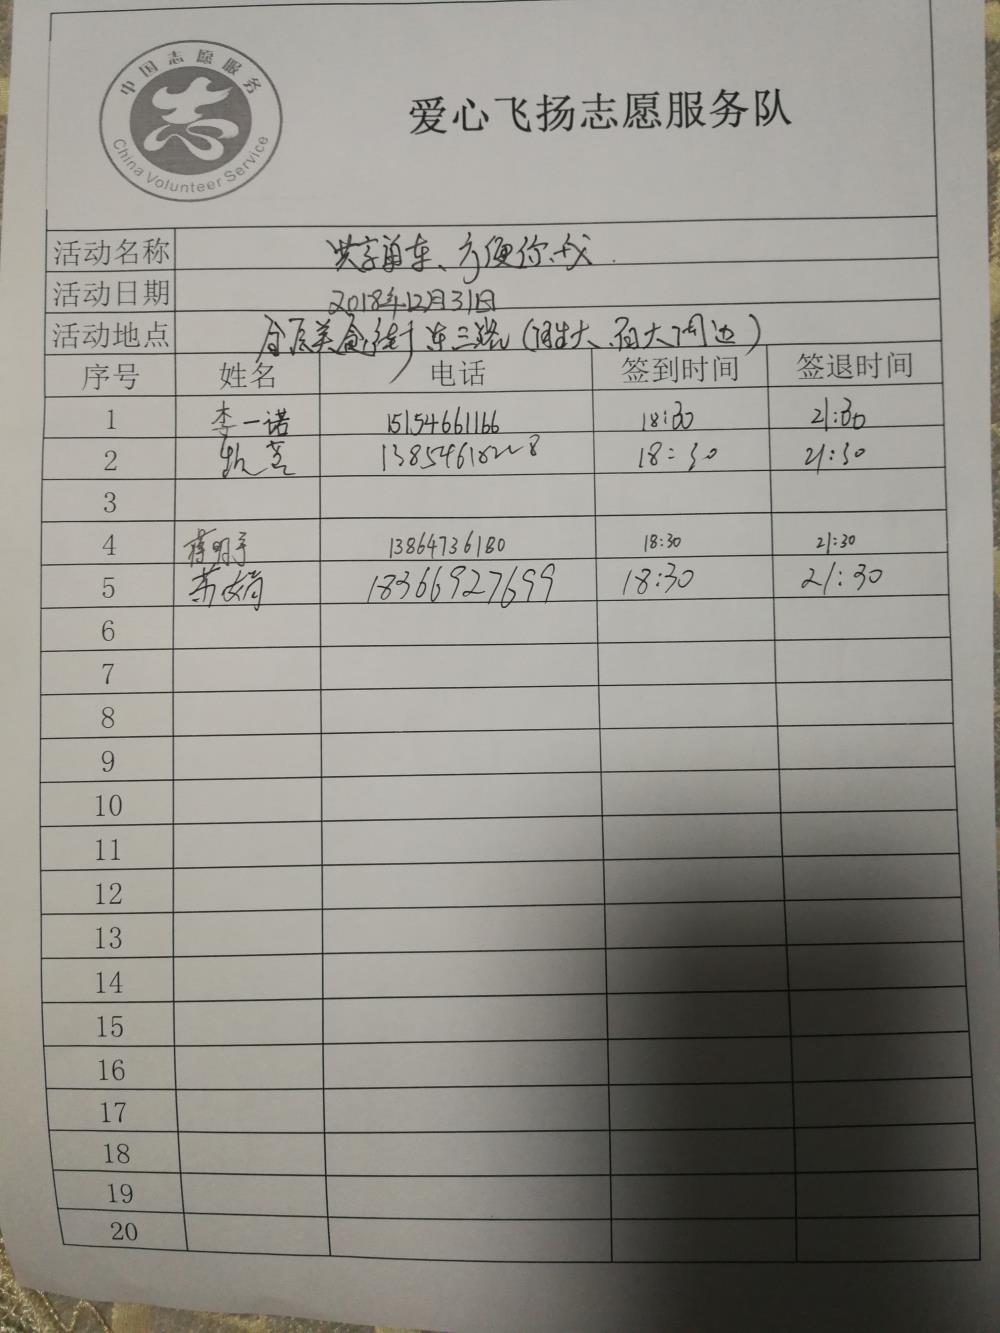 中国志愿服务
China Volunteer Service
爱心飞扬志愿服务队
活动名称 共享单车、方便你我.
活动日期 2018年12月31日
活动地点 美食街东三路(胜大、石大周边)
序号 姓名 电话 签到时间 签退时间
1 李一诺 15154661166 18:30 21:30
2 18:30 21:30
3
4 13864736180 18:30 21:30
5 18366927699 18:30 21:30
6
7
8
9
10
11
12
13
14
15
16
17
18
19
20